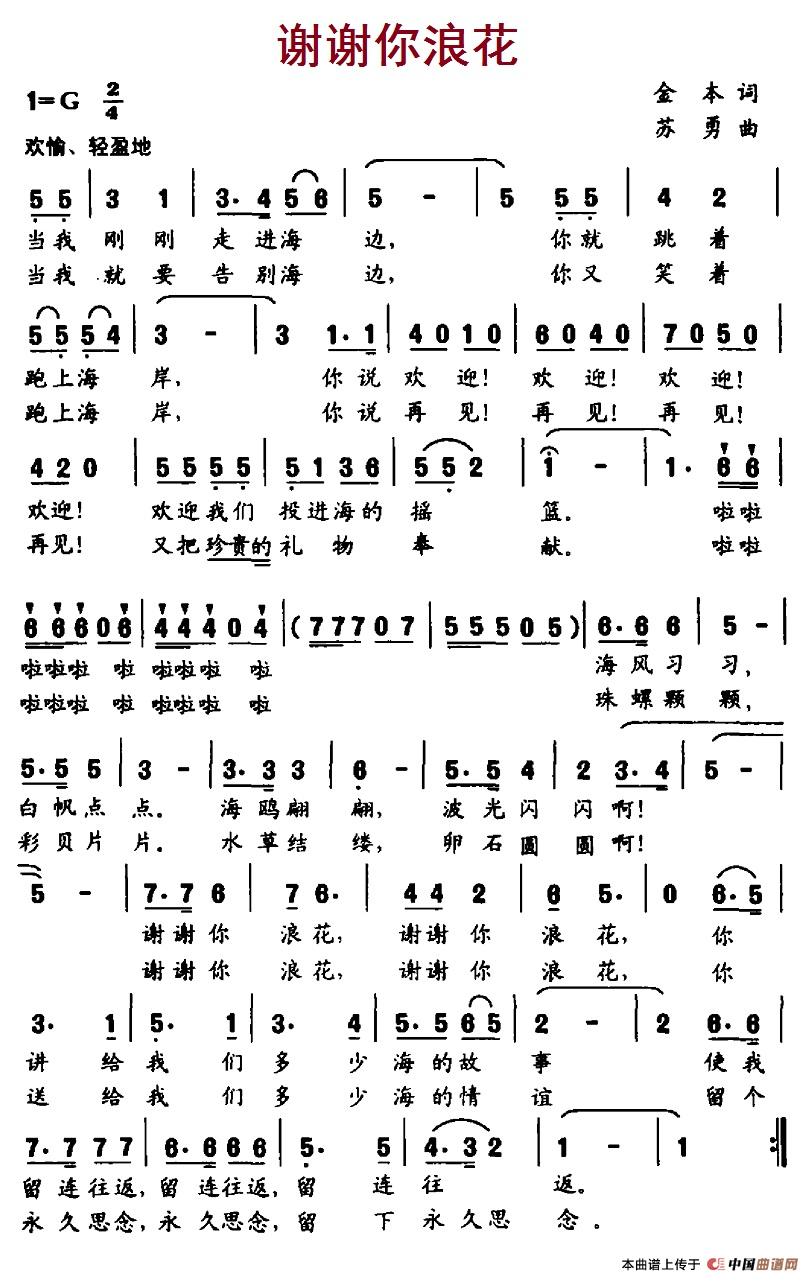 谢谢你浪花
1=G 2/4
金 本 词
苏 勇 曲
欢愉、轻盈地
5 5 | 3 1 | 3. 4 5 6 | 5 - | 5 5 5 | 4 2
当我 刚 刚 走 进 海 边， 你 就 跳 着
当我 就 要 告 别 海 边， 你 又 笑 着
5 5 5 4 | 3 - | 3 1. 1 | 4 0 1 0 | 6 0 4 0 | 7 0 5 0 |
跑 上 海 岸， 你 说 欢 迎！ 欢 迎！ 欢 迎！
跑 上 海 岸， 你 说 再 见！ 再 见！ 再 见！
4 2 0 | 5 5 5 5 | 5 1 3 6 | 5 5 2 | 1 - | 1. 6 6
欢迎！ 欢迎我们 投进海的 摇 篮。 啦啦
再见！ 又把珍贵的 礼 物 奉 献。 啦啦
6 6 6 0 6 | 4 4 4 0 4 | ( 7 7 7 0 7 | 5 5 5 0 5 ) | 6. 6 6 | 5 - |
啦啦啦 啦 啦啦啦 啦 海 风 习 习，
啦啦啦 啦 啦啦啦 啦 珠 螺 颗 颗，
5. 5 5 | 3 - | 3. 3 3 | 6 - | 5. 5 4 | 2 3. 4 | 5 - |
白 帆 点 点。 海 鸥 翩 翩， 波 光 闪 闪 啊！
彩 贝 片 片。 水 草 结 缕， 卵 石 圆 圆 啊！
5 - | 7. 7 6 | 7 6. | 4 4 2 | 6 5. | 0 6. 5 |
谢 谢 你 浪 花， 谢谢 你 浪 花， 你
谢 谢 你 浪 花， 谢谢 你 浪 花， 你
3. 1 | 5. 1 | 3. 4 | 5. 5 6 5 | 2 - | 2 6. 6
讲 给 我 们 多 少 海 的 故 事 使 我
送 给 我 们 多 少 海 的 情 谊 留 个
7. 7 7 7 | 6. 6 6 6 | 5. 5 | 4. 3 2 | 1 - | 1 :||
留 连 往 返， 留 连 往 返， 留 连 往 返。
永 久 思 念， 永 久 思 念， 留 下 永 久 思 念 。
本曲谱上传于 中国曲谱网